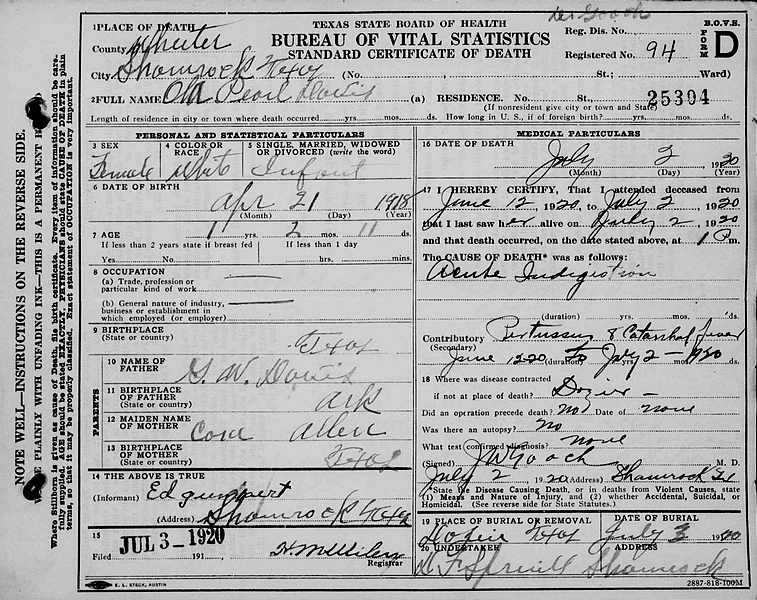 Dr Gooch
1 PLACE OF DEATH
TEXAS STATE BOARD OF HEALTH
B.O.V.S.
County Wheeler
BUREAU OF VITAL STATISTICS
Reg. Dis. No.
FORM D
STANDARD CERTIFICATE OF DEATH
Registered No. 94
City Shamrock Texas (No. St.; Ward)
2 FULL NAME Pearl Davis (a) RESIDENCE. No. St., 25304
(If nonresident give city or town and State)
Length of residence in city or town where death occurred yrs. mos. ds. How long in U. S., if of foreign birth? yrs. mos. ds.
PERSONAL AND STATISTICAL PARTICULARS
3 SEX
4 COLOR OR RACE
5 SINGLE, MARRIED, WIDOWED OR DIVORCED (write the word)
Female White Infant
6 DATE OF BIRTH
Apr 21 1918
(Month) (Day) (Year)
7 AGE 1 yrs. 2 mos. 11 ds.
If less than 2 years state if breast fed
If less than 1 day
Yes No hrs. min.
8 OCCUPATION
(a) Trade, profession or
particular kind of work
(b) General nature of industry,
business or establishment in
which employed (or employer)
9 BIRTHPLACE
(State or country) Texas
PARENTS
10 NAME OF
FATHER G. W. Davis
11 BIRTHPLACE
OF FATHER
(State or country) Ark
12 MAIDEN NAME
OF MOTHER Cora Allen
13 BIRTHPLACE
OF MOTHER
(State or country) Texas
14 THE ABOVE IS TRUE
(Informant) Ed
(Address) Shamrock Texas
15
Filed JUL 3 - 1920 191
Registrar
E. L. STECK, AUSTIN
MEDICAL PARTICULARS
16 DATE OF DEATH
July 2 1920
(Month) (Day) (Year)
17 I HEREBY CERTIFY, That I attended deceased from
June 12, 1920, to July 2, 1920
that I last saw her alive on July 2, 1920
and that death occurred, on the date stated above, at 1 P m.
The CAUSE OF DEATH* was as follows:
Acute Indigestion
(duration) yrs. mos. ds.
Contributory Pertussis & Catarrhal fever
(Secondary)
June 12-20 to July 2 - 1920
(duration) yrs. mos. ds.
18 Where was disease contracted
if not at place of death? Dozier
Did an operation precede death? no Date of none
Was there an autopsy? no
What test confirmed diagnosis? none
(Signed) J W Gooch M. D.
July 2 1920 (Address) Shamrock Tx
*State the Disease Causing Death, or in deaths from Violent Causes, state (1) Means and Nature of Injury, and (2) whether Accidental, Suicidal, or Homicidal. (See reverse side for State Statutes.)
19 PLACE OF BURIAL OR REMOVAL
DATE OF BURIAL
Dozier Texas July 3 1920
20 UNDERTAKER
ADDRESS
Shamrock
2887-818-100M
NOTE WELL—INSTRUCTIONS ON THE REVERSE SIDE.
PLAINLY WITH UNFADING INK—THIS IS A PERMANENT
Where Stillborn is given as cause of Death, file birth certificate. Every item of information should be care-
fully supplied. AGE should be stated EXACTLY. PHYSICIANS should state CAUSE OF DEATH in plain
terms, so that it may be properly classified. Exact statement of OCCUPATION is very important.